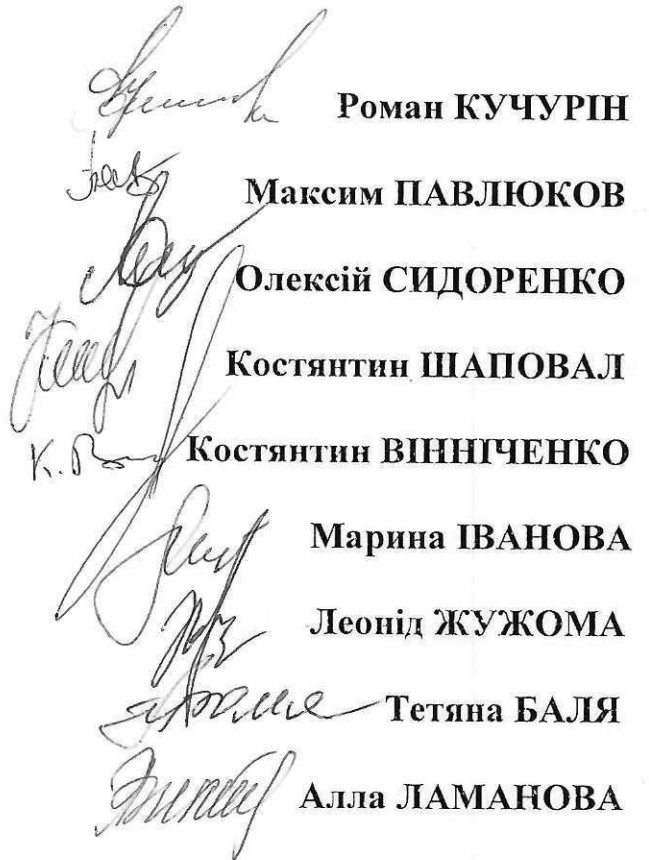 Роман КУЧУРІН
Максим ПАВЛЮКОВ
Олексій СИДОРЕНКО
Костянтин ШАПОВАЛ
Костянтин ВІННІЧЕНКО
Марина ІВАНОВА
Леонід ЖУЖОМА
Тетяна БАЛЯ
Алла ЛАМАНОВА